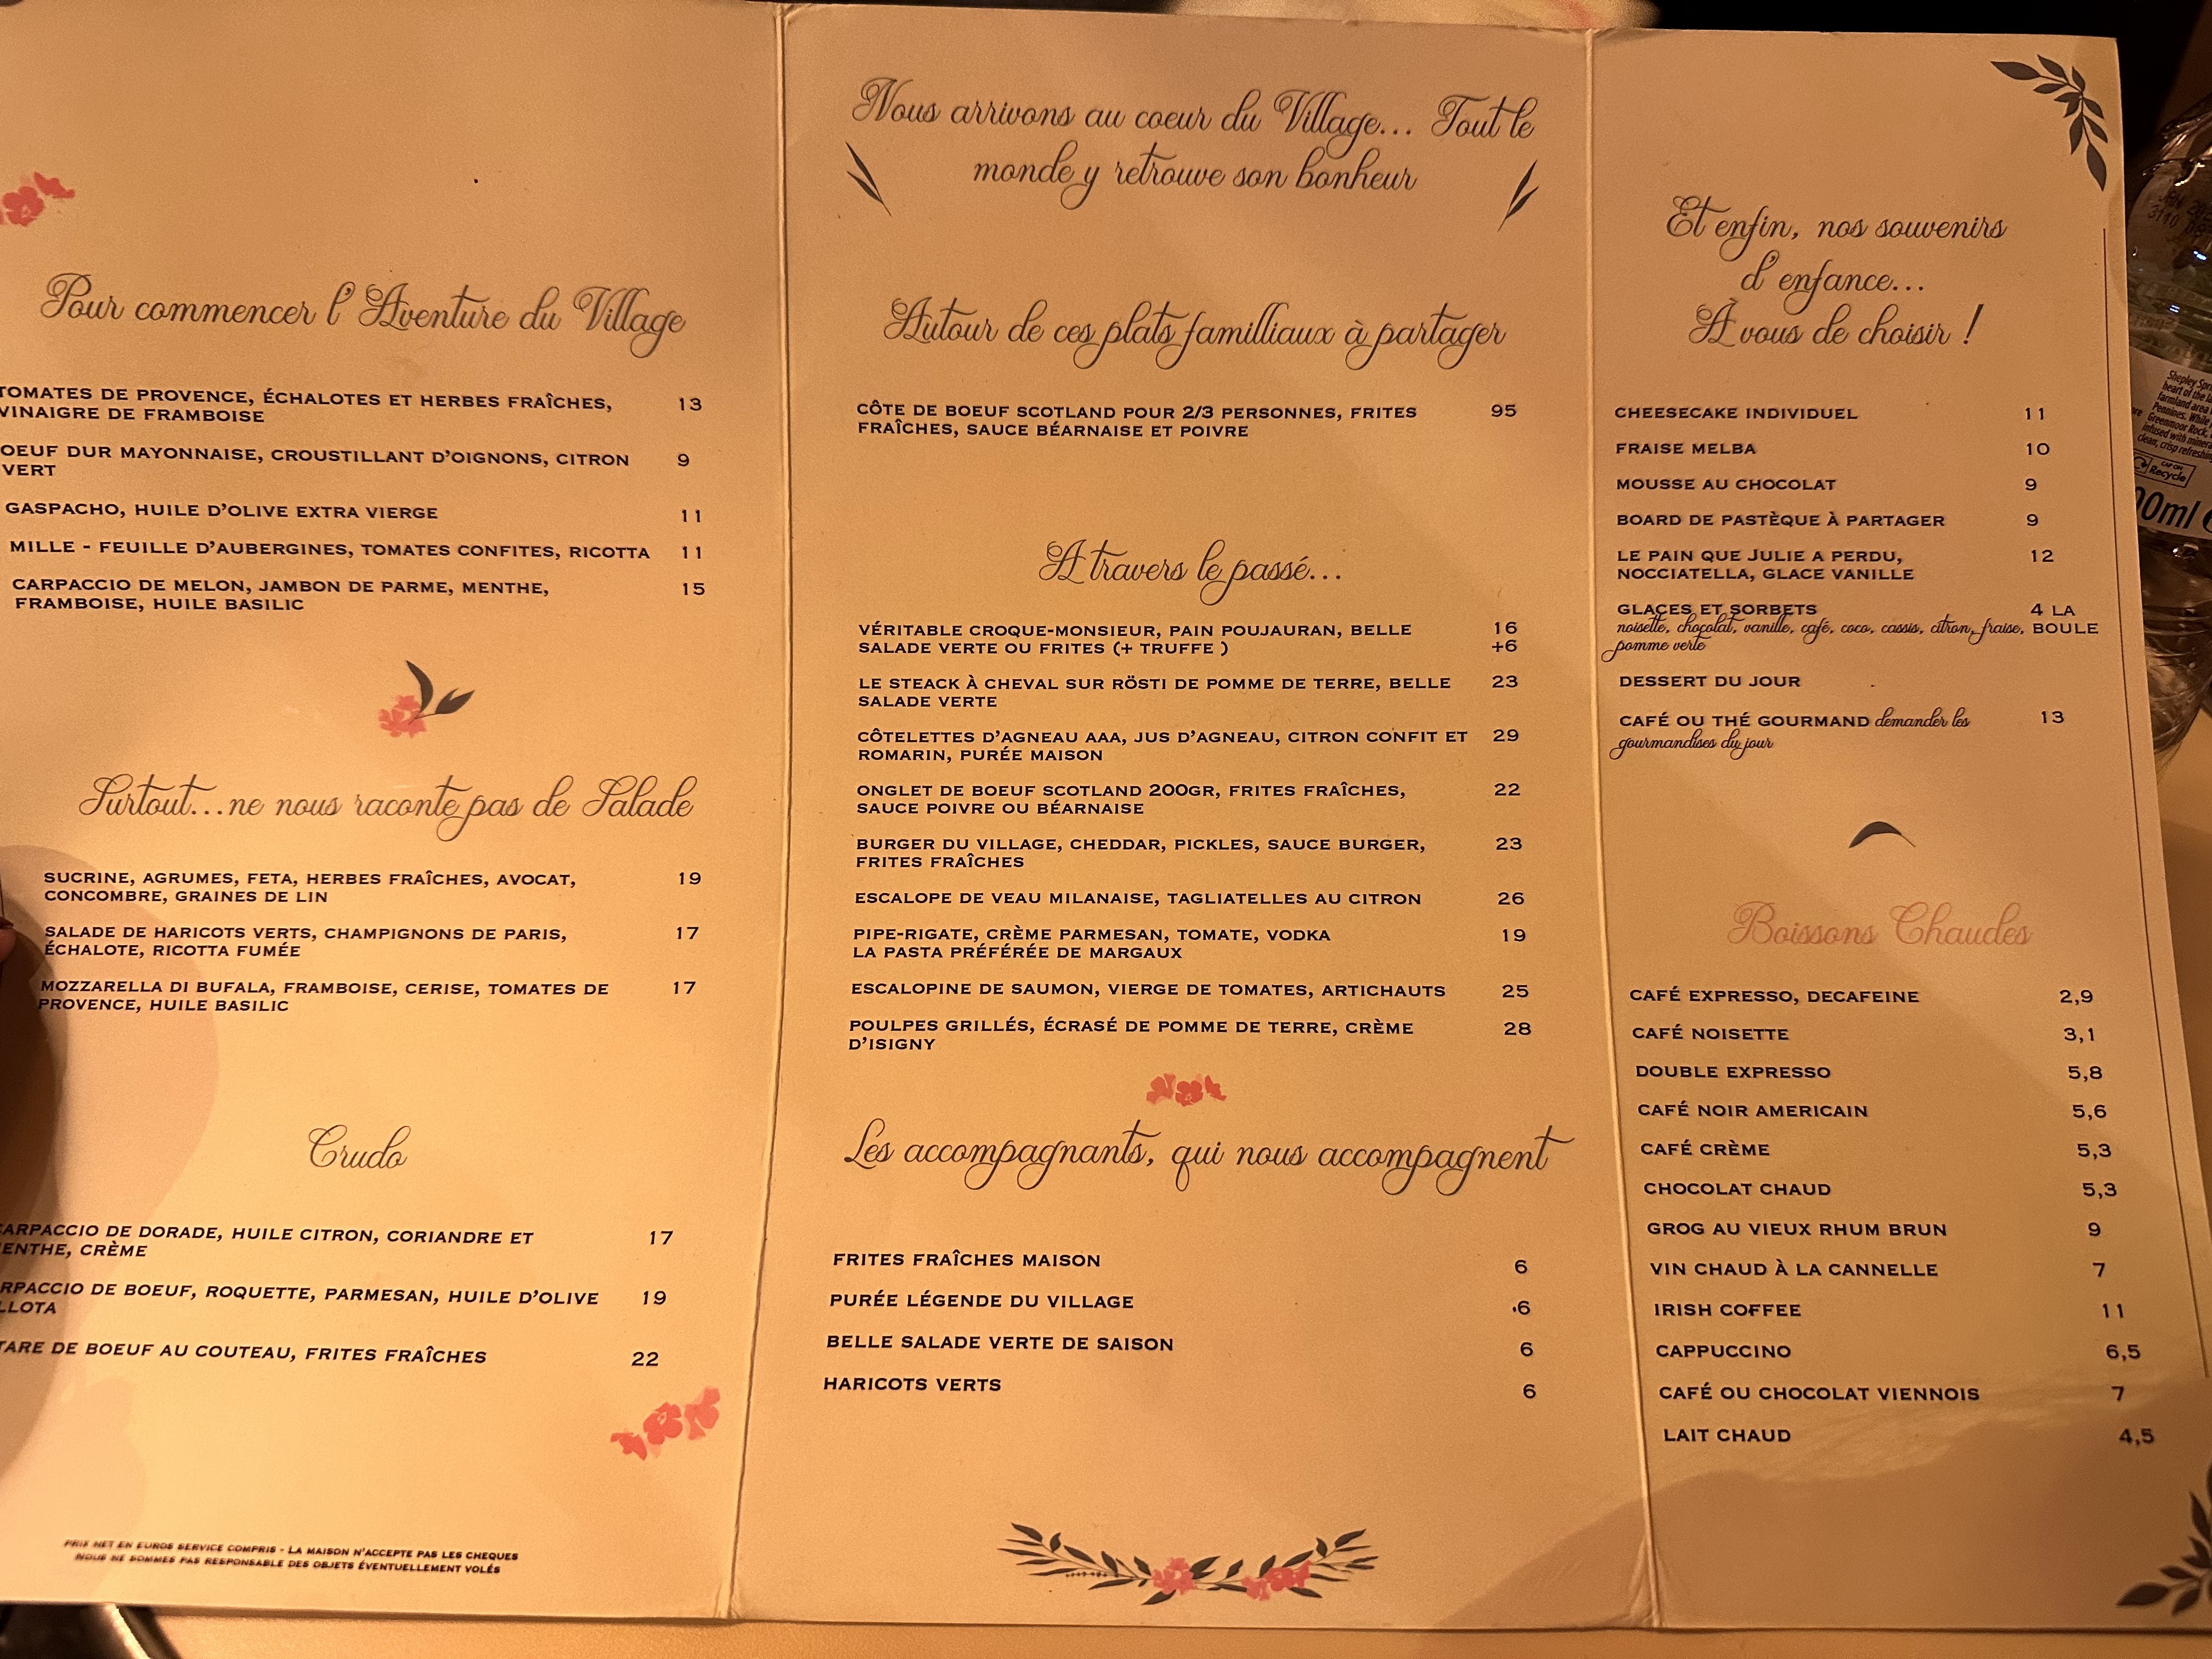 Pour commencer l'Aventure du Village
TOMATES DE PROVENCE, ÉCHALOTES ET HERBES FRAÎCHES, 13
VINAIGRE DE FRAMBOISE
OEUF DUR MAYONNAISE, CROUSTILLANT D'OIGNONS, CITRON 9
VERT
GASPACHO, HUILE D'OLIVE EXTRA VIERGE 11
MILLE - FEUILLE D'AUBERGINES, TOMATES CONFITES, RICOTTA 11
CARPACCIO DE MELON, JAMBON DE PARME, MENTHE, 15
FRAMBOISE, HUILE BASILIC
Surtout...ne nous raconte pas de Salade
SUCRINE, AGRUMES, FETA, HERBES FRAÎCHES, AVOCAT, 19
CONCOMBRE, GRAINES DE LIN
SALADE DE HARICOTS VERTS, CHAMPIGNONS DE PARIS, 17
ÉCHALOTE, RICOTTA FUMÉE
MOZZARELLA DI BUFALA, FRAMBOISE, CERISE, TOMATES DE 17
PROVENCE, HUILE BASILIC
Crudo
ARPACCIO DE DORADE, HUILE CITRON, CORIANDRE ET 17
ENTHE, CRÈME
RPACCIO DE BOEUF, ROQUETTE, PARMESAN, HUILE D'OLIVE 19
LLOTA
TARE DE BOEUF AU COUTEAU, FRITES FRAÎCHES 22
PRIX NET EN EUROS SERVICE COMPRIS - LA MAISON N'ACCEPTE PAS LES CHEQUES
NOUS NE SOMMES PAS RESPONSABLE DES OBJETS ÉVENTUELLEMENT VOLÉS
Nous arrivons au coeur du Village... Tout le
monde y retrouve son bonheur
Autour de ces plats familliaux à partager
CÔTE DE BOEUF SCOTLAND POUR 2/3 PERSONNES, FRITES 95
FRAÎCHES, SAUCE BÉARNAISE ET POIVRE
A travers le passé...
VÉRITABLE CROQUE-MONSIEUR, PAIN POUJAURAN, BELLE 16
SALADE VERTE OU FRITES (+ TRUFFE ) +6
LE STEACK À CHEVAL SUR RÖSTI DE POMME DE TERRE, BELLE 23
SALADE VERTE
CÔTELETTES D'AGNEAU AAA, JUS D'AGNEAU, CITRON CONFIT ET 29
ROMARIN, PURÉE MAISON
ONGLET DE BOEUF SCOTLAND 200GR, FRITES FRAÎCHES, 22
SAUCE POIVRE OU BÉARNAISE
BURGER DU VILLAGE, CHEDDAR, PICKLES, SAUCE BURGER, 23
FRITES FRAÎCHES
ESCALOPE DE VEAU MILANAISE, TAGLIATELLES AU CITRON 26
PIPE-RIGATE, CRÈME PARMESAN, TOMATE, VODKA 19
LA PASTA PRÉFÉRÉE DE MARGAUX
ESCALOPINE DE SAUMON, VIERGE DE TOMATES, ARTICHAUTS 25
POULPES GRILLÉS, ÉCRASÉ DE POMME DE TERRE, CRÈME 28
D'ISIGNY
Les accompagnants, qui nous accompagnent
FRITES FRAÎCHES MAISON 6
PURÉE LÉGENDE DU VILLAGE 6
BELLE SALADE VERTE DE SAISON 6
HARICOTS VERTS 6
Et enfin, nos souvenirs
d'enfance...
À vous de choisir !
CHEESECAKE INDIVIDUEL 11
FRAISE MELBA 10
MOUSSE AU CHOCOLAT 9
BOARD DE PASTÈQUE À PARTAGER 9
LE PAIN QUE JULIE A PERDU, 12
NOCCIATELLA, GLACE VANILLE
GLACES ET SORBETS 4 LA
noisette, chocolat, vanille, café, coco, cassis, citron, fraise, BOULE
pomme verte
DESSERT DU JOUR
CAFÉ OU THÉ GOURMAND demander les 13
gourmandises du jour
Boissons Chaudes
CAFÉ EXPRESSO, DECAFEINE 2,9
CAFÉ NOISETTE 3,1
DOUBLE EXPRESSO 5,8
CAFÉ NOIR AMERICAIN 5,6
CAFÉ CRÈME 5,3
CHOCOLAT CHAUD 5,3
GROG AU VIEUX RHUM BRUN 9
VIN CHAUD À LA CANNELLE 7
IRISH COFFEE 11
CAPPUCCINO 6,5
CAFÉ OU CHOCOLAT VIENNOIS 7
LAIT CHAUD 4,5
Shepley Spr
heart of the
farmland area
Pennines. While
Greenmoor Rock
infused with mineral
clean, crisp refreshing
CAP ON
Recycle
00ml